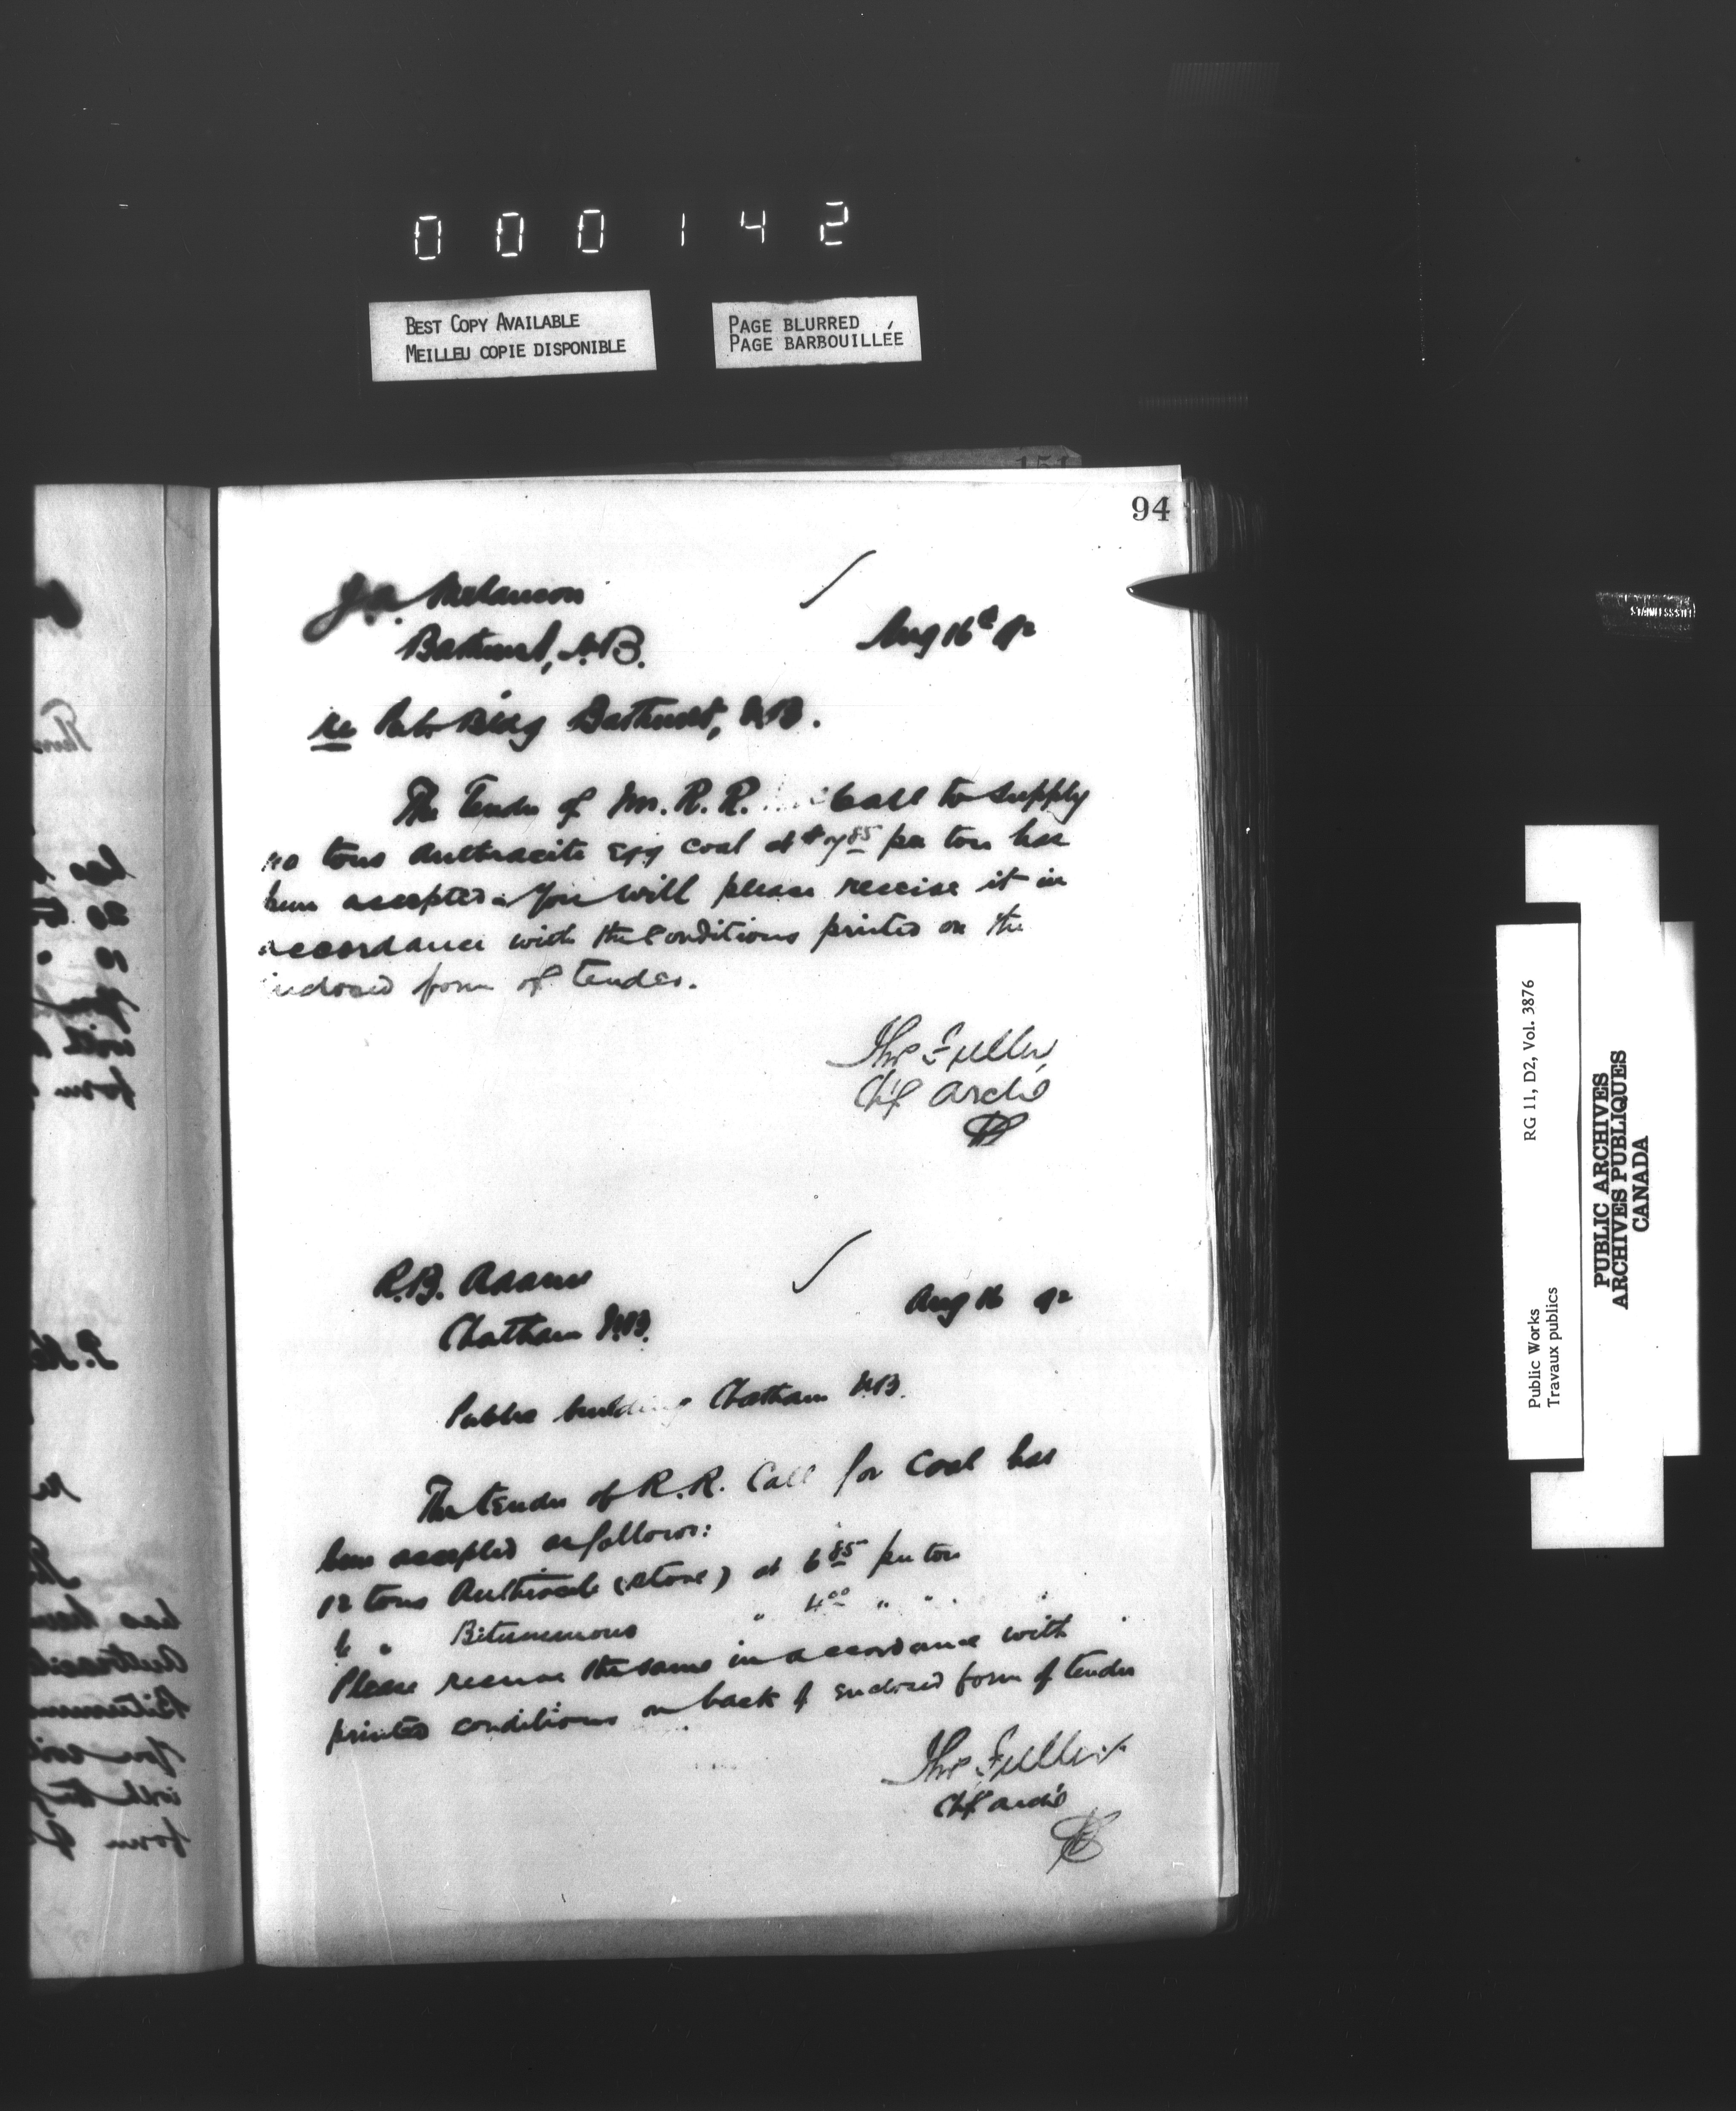 000142
BEST COPY AVAILABLE
MEILLEU COPIE DISPONIBLE
PAGE BLURRED
PAGE BARBOUILLÉE
151
94
Melanson
Bathurst, N.B.
Aug 16th 92
re Pub. Bldg Bathurst, N.B.
The Tender of Mr. R. R. Call to supply
tons anthracite egg coal at $7 85 per ton has
been accepted. You will please receive it in
accordance with the Conditions printed on the
inclosed form of tender.
Thos Fuller
Chf Archt
R.B. Adams
Chatham N.B.
Aug 16 92
Public building Chatham N.B.
The tender of R.R. Call for Coal has
been accepted as follows:
12 tons Anthracite (stove) at 6 85 per ton
6 " Bituminous " 4 00 " "
Please receive the same in accordance with
printed conditions on back of enclosed form of tender
Thos Fuller
Chf Archt
STAINLESS STEEL
Public Works
Travaux publics
RG 11, D2, Vol. 3876
PUBLIC ARCHIVES
ARCHIVES PUBLIQUES
CANADA